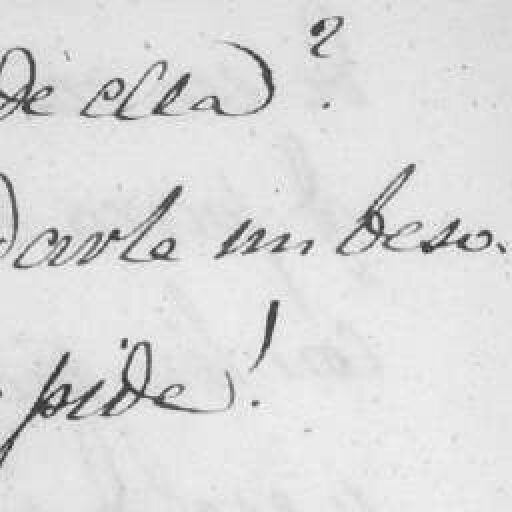 de ella?
Darle un beso.
pide!